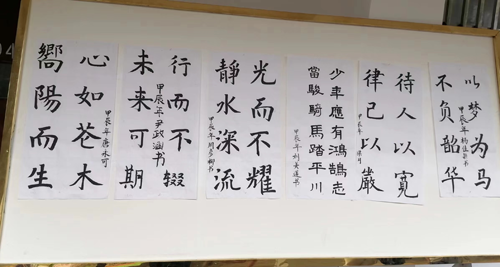 以梦为马
不负韶华
甲辰年
待人以宽
律已以嚴
甲辰年
少年應有鴻鵠志
當駿騎馬踏平川
甲辰年刘美莲书
光而不耀
靜水深流
甲辰年
行而不辍
未来可期
甲辰年尹政涵书
心如苍木
嚮陽而生
甲辰年唐木可